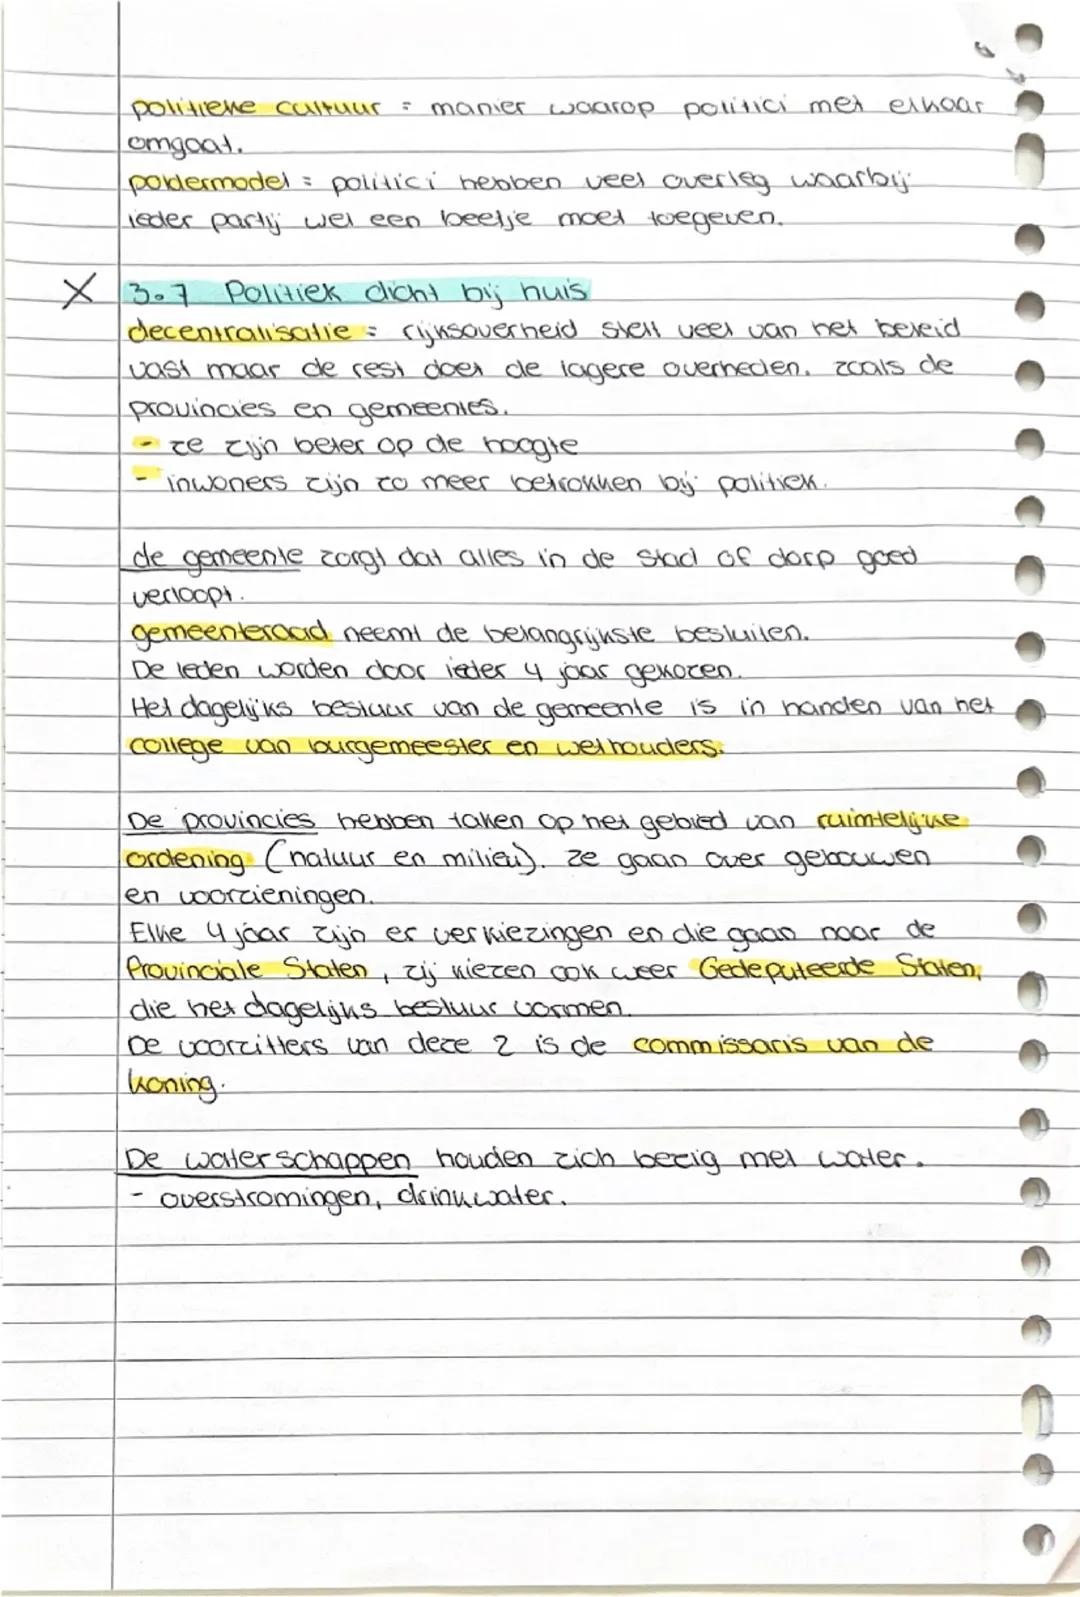 politieke cultuur = manier waarop politici met elkaar
omgaat.
poldermodel = politici hebben veel overleg waarbij
ieder partij wel een beetje moet toegeven.
X 3.7 Politiek dicht bij huis
decentralisatie = rijksoverheid stelt veel van het beleid
vast maar de rest doet de lagere overheden. zoals de
provincies en gemeentes.
- ze zijn beter op de hoogte
- inwoners zijn zo meer betrokken bij politiek.
de gemeente zorgt dat alles in de stad of dorp goed
verloopt.
gemeenteraad neemt de belangrijkste besluiten.
De leden worden door ieder 4 jaar gekozen.
Het dagelijks bestuur van de gemeente is in handen van het
college van burgemeester en wethouders.
De provincies hebben taken op het gebied van ruimtelijke
ordening (natuur en milieu). ze gaan over gebouwen
en voorzieningen.
Elke 4 jaar zijn er verkiezingen en die gaan naar de
Provinciale Staten, zij kiezen ook weer Gedeputeerde Staten,
die het dagelijks bestuur vormen.
De voorzitters van deze 2 is de commissaris van de
koning.
De waterschappen houden zich bezig met water.
- overstromingen, drinkwater.